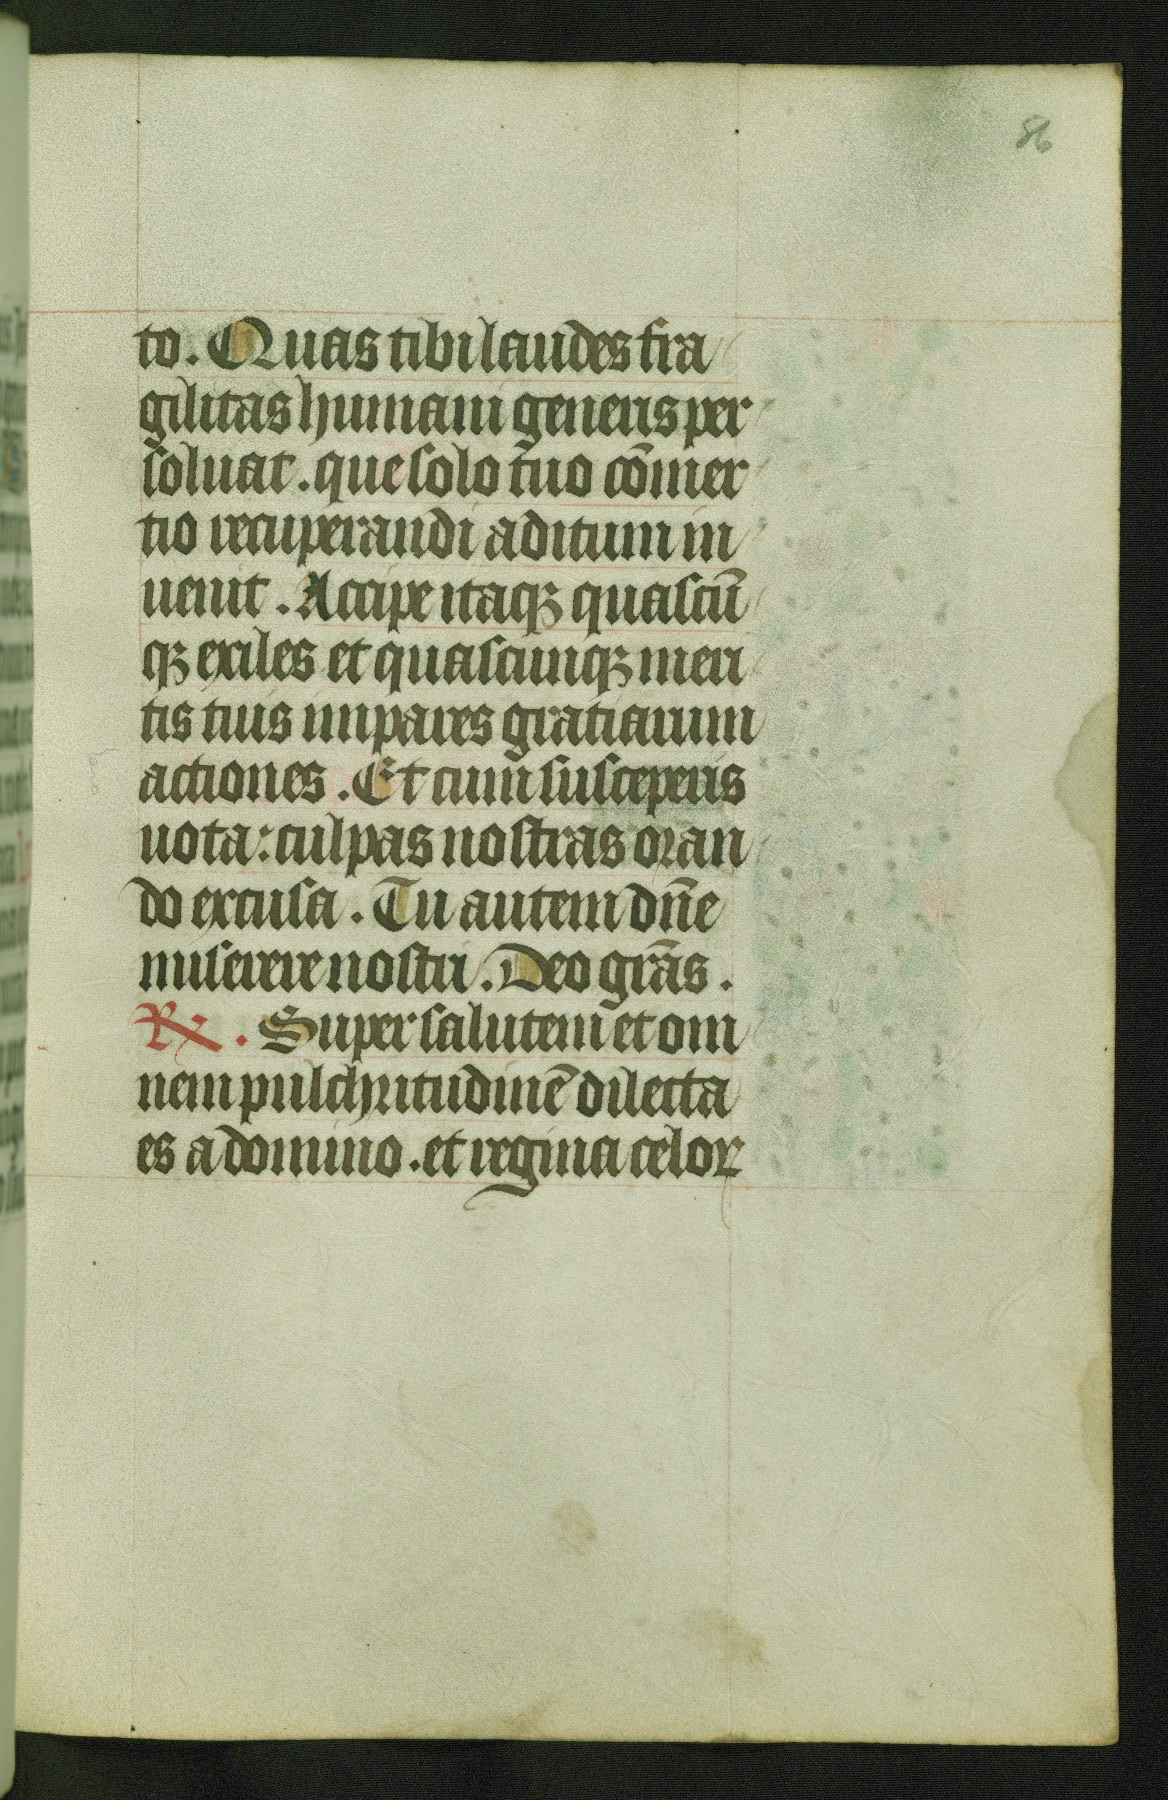 86
to. Quas tibi laudes fra
gilitas humani generis per
soluat. que solo tuo cōmer
tio recuperandi aditum in
uenit. Accipe itaqꝫ quascū
qꝫ exiles et quascunqꝫ meri
tis tuis impares gratiarum
actiones. Et cum susceperis
uota: culpas nostras oran
do excusa. Tu autem dn̄e
miserere nostri. Deo grās.
Rx. Super salutem et om
nem pulchritudinē dilecta
es a domino. et regina celoꝝ